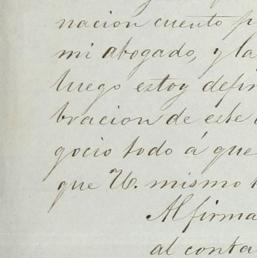 nacion cuento p
mi abogado, y la
luego estoy defin
bracion de este
gocio todo á que
que U. mismo
Al firma
al conta